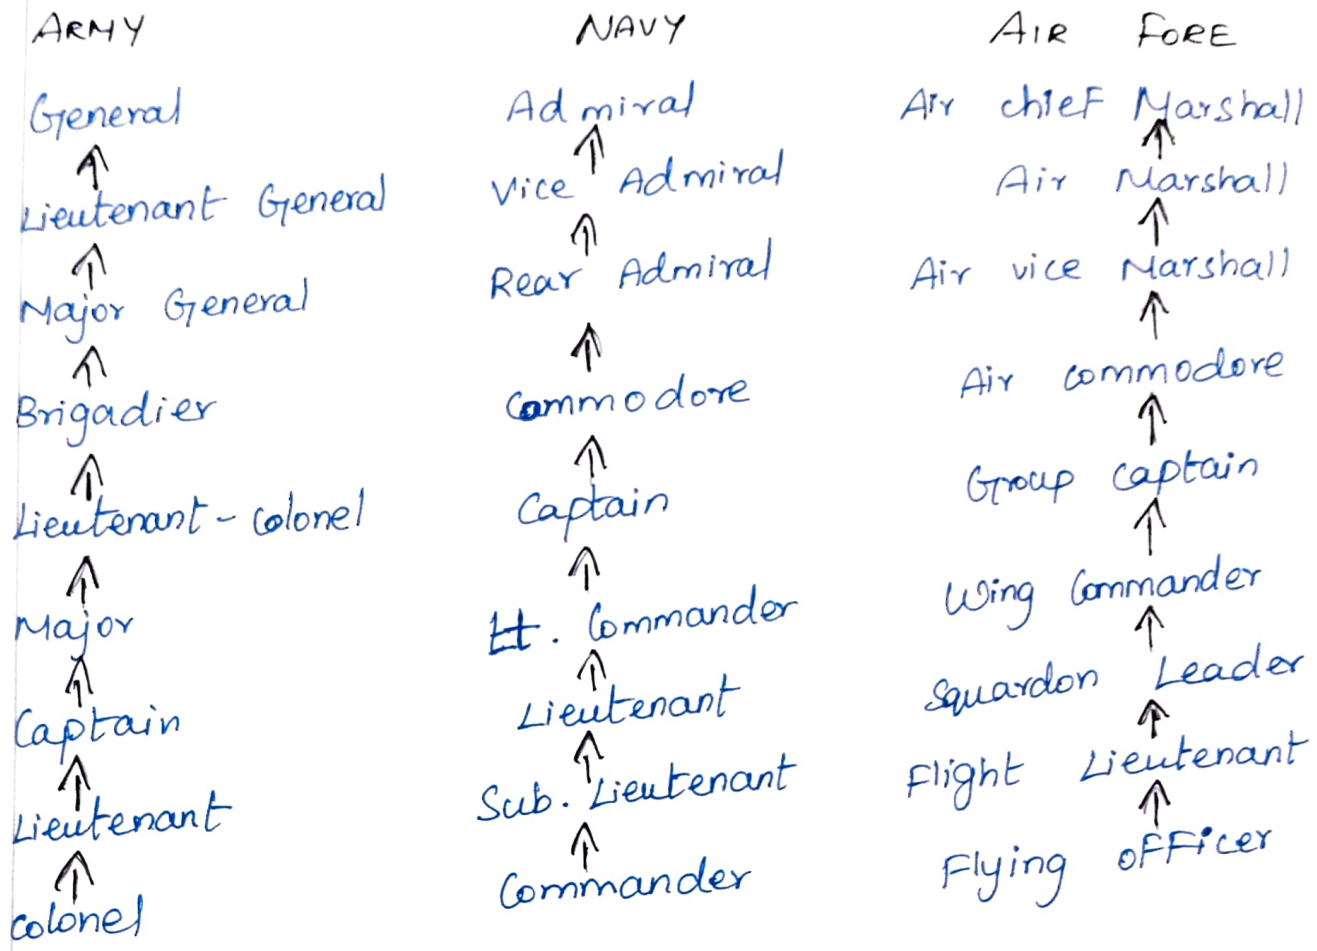 ARMY
General
Lieutenant General
Major General
Brigadier
Lieutenant-colonel
Major
Captain
Lieutenant
colonel
NAVY
Admiral
Vice Admiral
Rear Admiral
Commodore
Captain
Lt. Commander
Lieutenant
Sub. Lieutenant
Commander
AIR FORE
Air chief Marshall
Air Marshall
Air vice Marshall
Air commodore
Group captain
Wing Commander
Squardon Leader
Flight Lieutenant
Flying officer